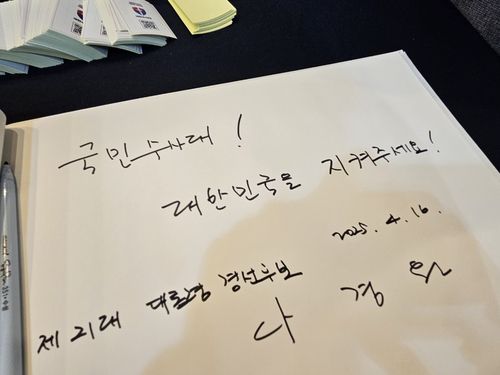 국민수사대!
대한민국을 지켜주세요!
2025. 4. 16.
제 21대 대통령 경선후보
나 경 원